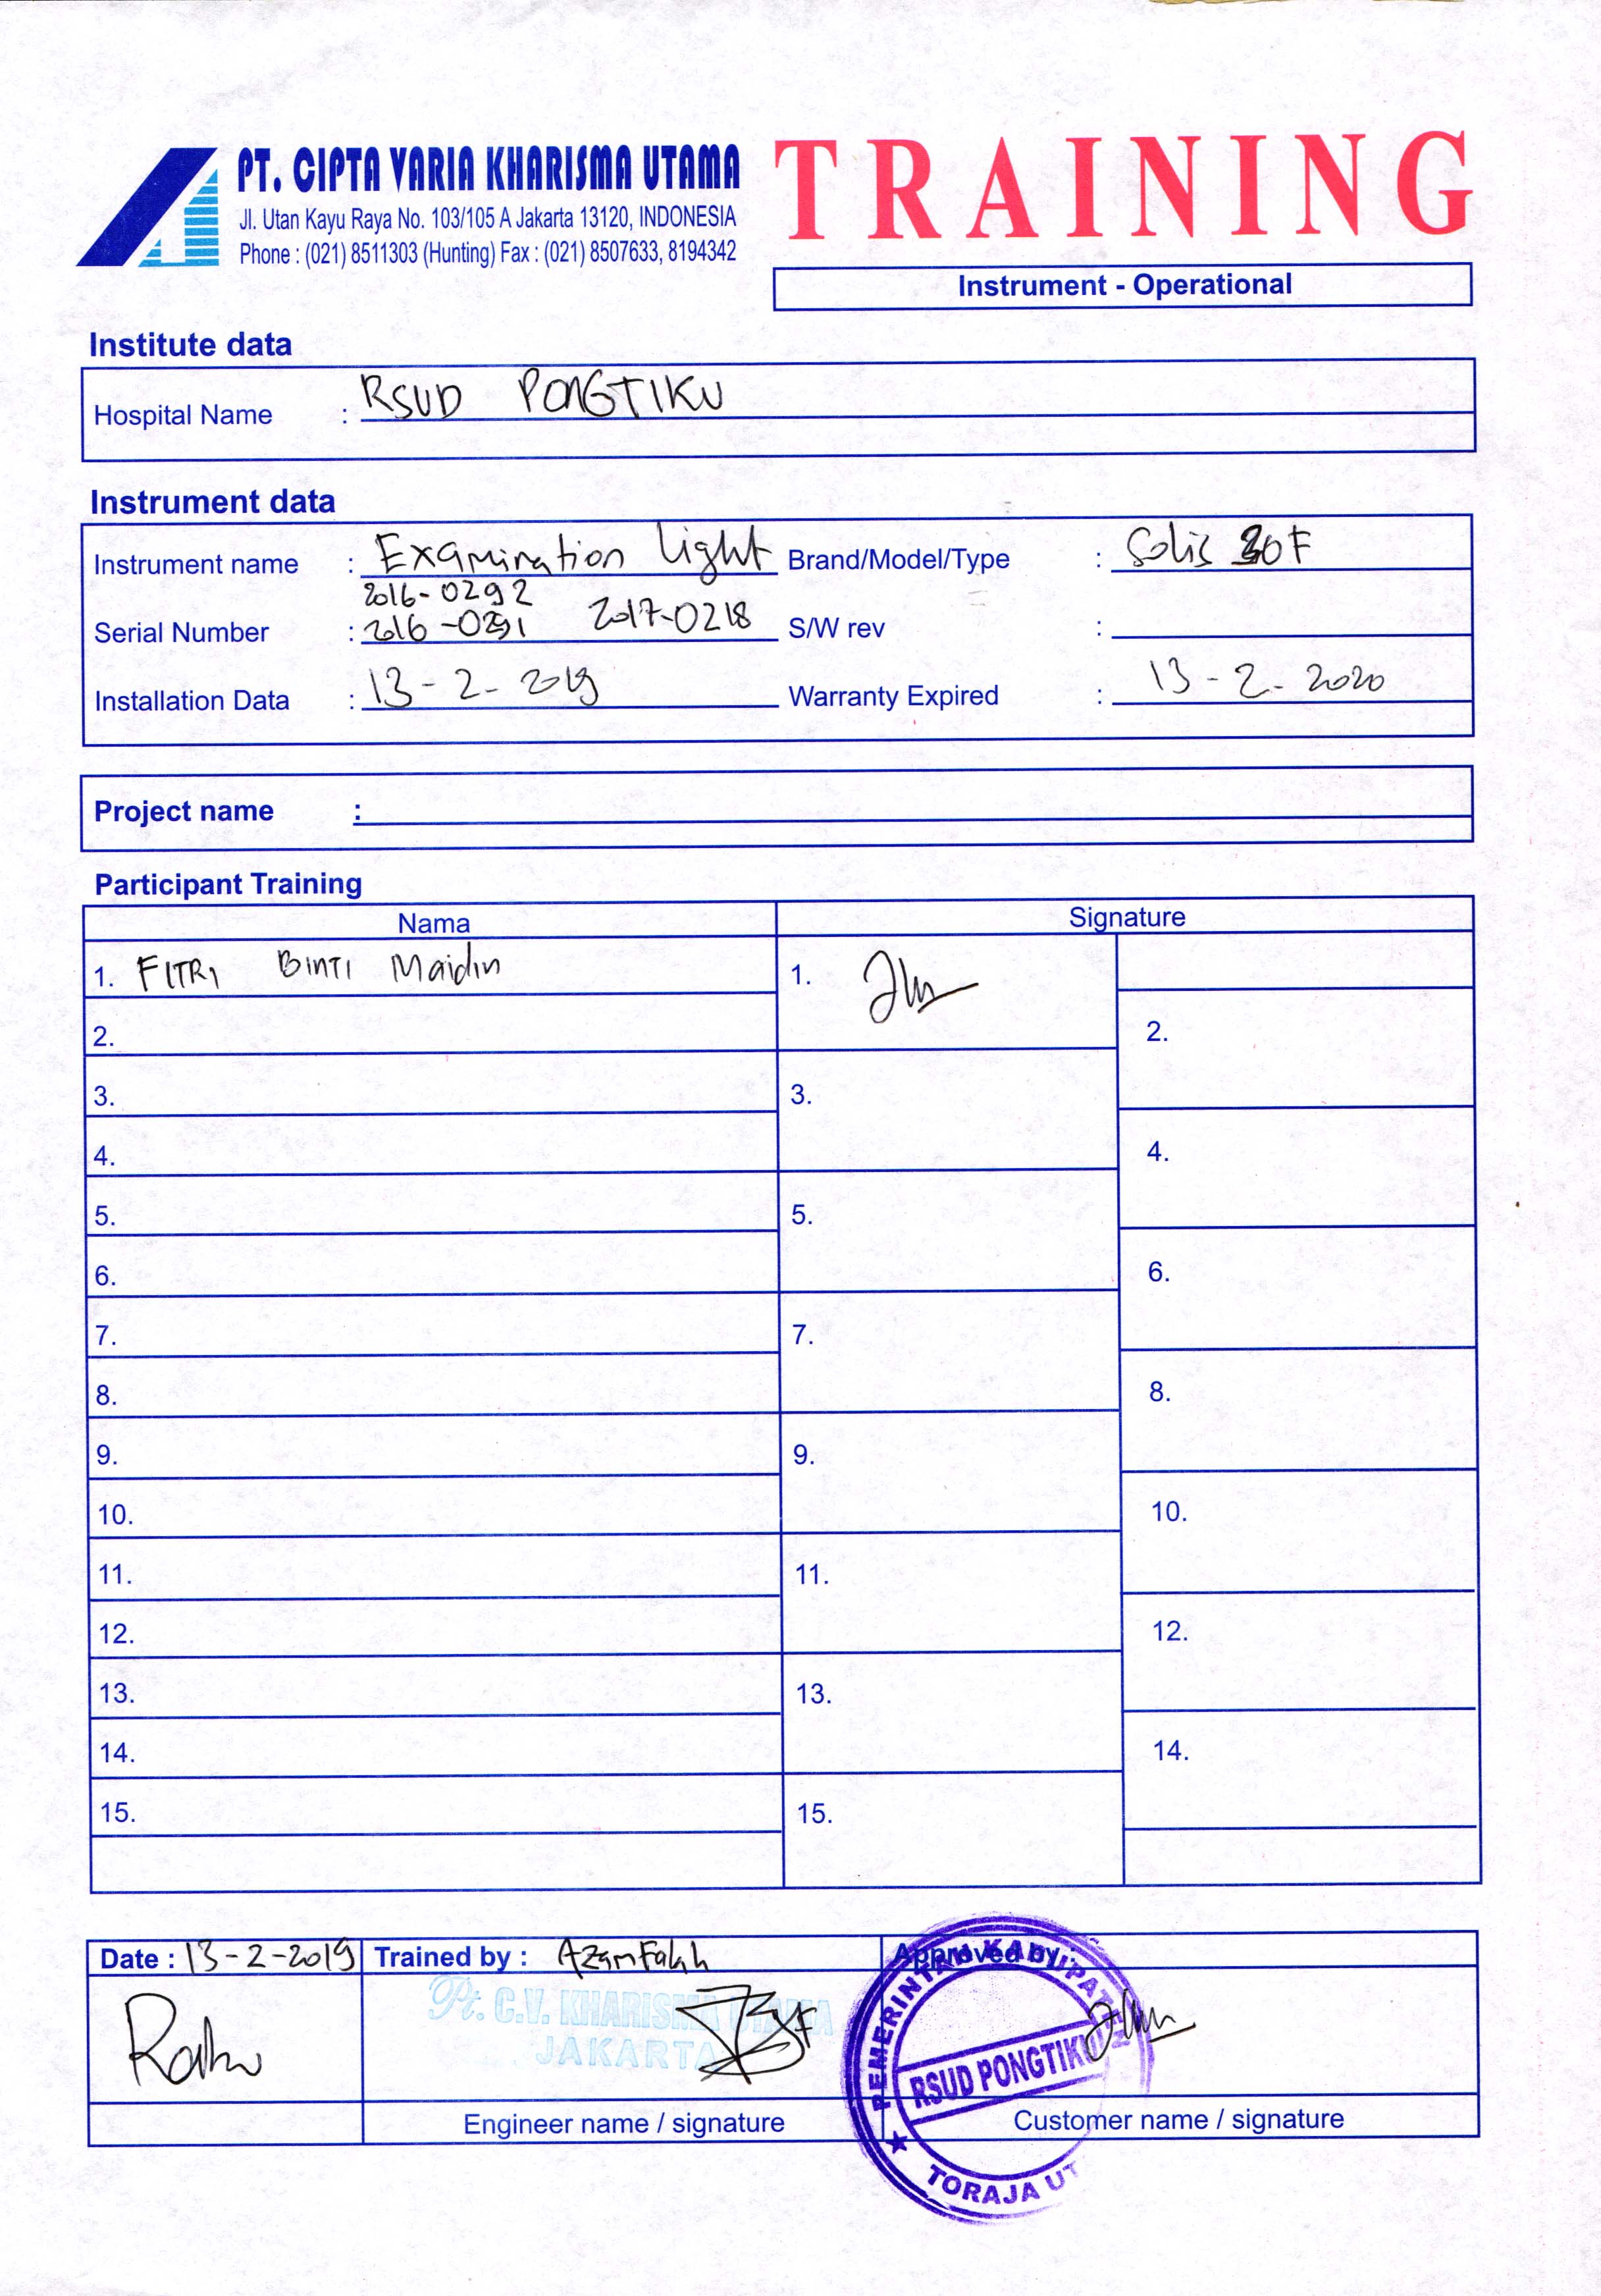 PT. CIPTA VARIA KHARISMA UTAMA
Jl. Utan Kayu Raya No. 103/105 A Jakarta 13120, INDONESIA
Phone : (021) 8511303 (Hunting) Fax : (021) 8507633, 8194342
TRAINING
Instrument - Operational
Institute data
Hospital Name : RSUD PONGTIKU
Instrument data
Instrument name : Examination light Brand/Model/Type : Solis 30F
2016-0292
Serial Number : 2016-0291 2017-0218 S/W rev :
Installation Data : 13-2-2019 Warranty Expired : 13-2-2020
Project name :
Participant Training
Nama Signature
1. FITRI BINTI Maidin 1.
2. 2.
3. 3.
4. 4.
5. 5.
6. 6.
7. 7.
8. 8.
9. 9.
10. 10.
11. 11.
12. 12.
13. 13.
14. 14.
15. 15.
Date : 13-2-2019 Trained by : Azam Falah Approved by :
Pt. C.V. KHARISMA UTAMA
JAKARTA
PEMERINTAH KABUPATEN
RSUD PONGTIKU
TORAJA UT
Engineer name / signature Customer name / signature